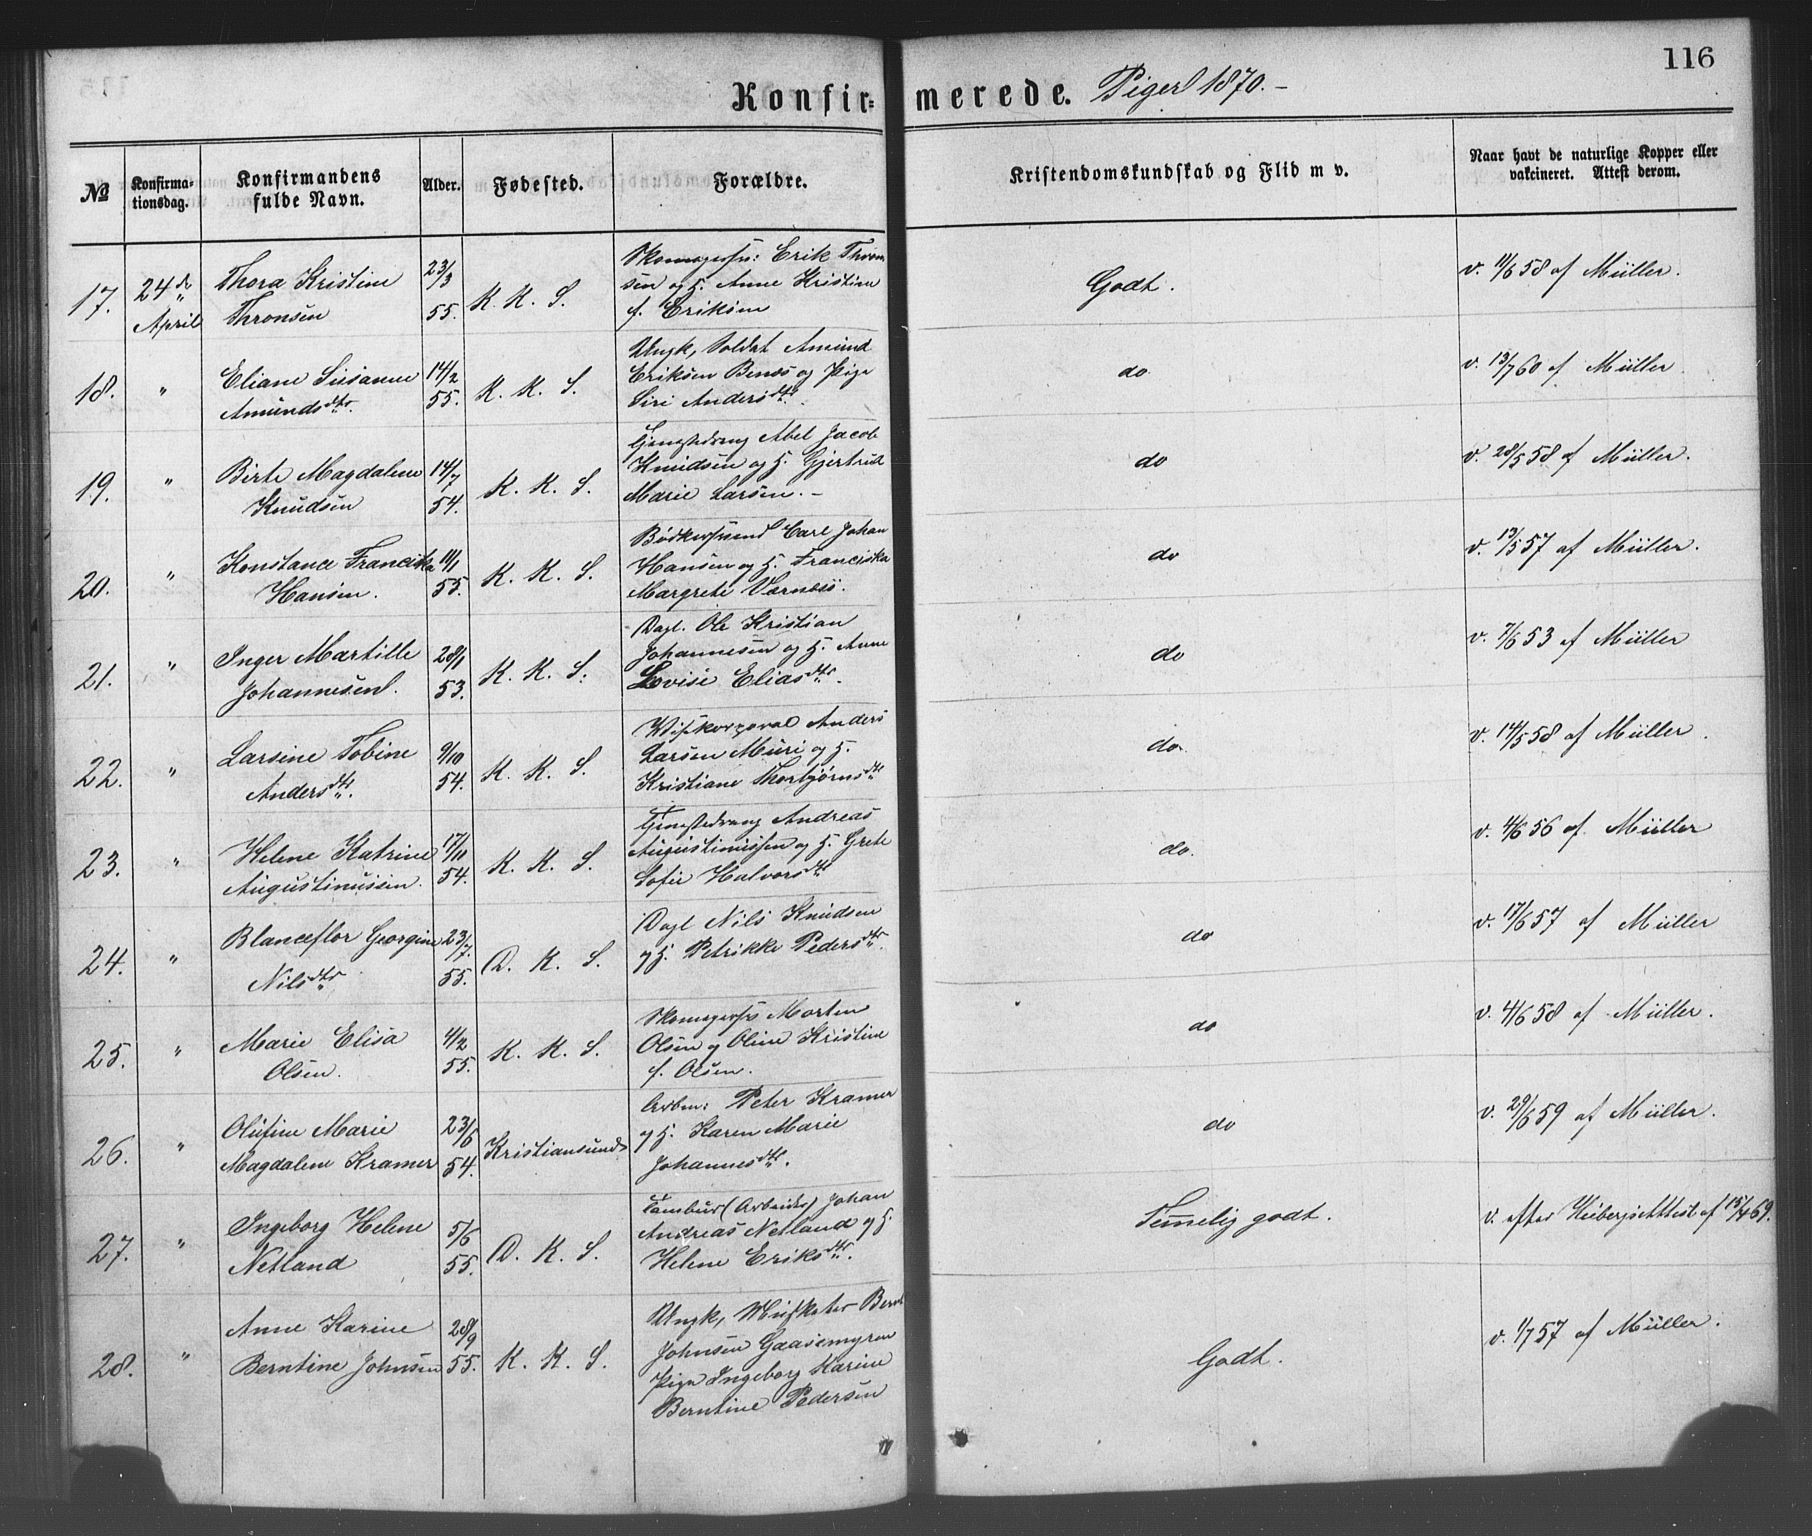 116
Konfir= merede. Piger 1870.-
No
Konfirma-
tionsdag.
Konfirmandens
fulde Navn.
Alder.
Fødested.
Forældre.
Kristendomskundskab og Flid m v.
Naar havt de naturlige Kopper eller
vakcineret. Attest derom.
17. 24de April
Thora Kristine
Thronsen
23/3
55.
K. K. S.
Erik Thron
sen og H. Anne Kristine
f. Eriksen
Godt.
v. 11/6 58 af Müller.
18. "
Eliane Susanne
Amundsdtr.
14/2
55.
K. K. S.
Ungk, Soldat Amund
Eriksen Benss og Pige
Siri Andersdtr.
do
v. 13/7 60 af Müller.
19. "
Birte Magdalene
Knudsen
14/7
54.
K. K. S.
Tjenestedreng Abel Jacob
Knudsen og H. Gjertrud
Marie Larsen.-
do
v. 28/5 58 af Müller.
20. "
Konstance Franciska
Hansen.
11/1
55.
K. K. S.
Bødkersvend Carl Johan
Hansen og H. Franciska
Margrete Værness.
do
v. 13/5 57 af Müller.
21. "
Inger Martille
Johannesen.
28/1
53.
K. K. S.
Dagl. Ole Kristian
Johannesen og H. Anne
Lovise Eliasdtr.
do
v. 7/6 53 af Müller
22. "
Larsine Tobine
Andersdtr.
9/10
54.
K. K. S.
Anders
Larsen Muri og H.
Kristiane Thorbjørnsdtr
do.
v. 14/5 58 af Müller.
23. "
Helene Katrine
Augustinussen.
17/10
54.
K. K. S.
Tjenestedreng Andreas
Augustinussen og H. Grete
Sofie Halvorsdtr
do.
v. 4/6 56 af Müller
24. "
Blanceflor Georgine
Nilsdtr
23/7.
55.
D. K. S.
Dagl Nils Knudsen
og H. Petrikke Pedersdtr.
do
v. 17/6 57 af Müller
25. "
Marie Elisa
Olsen.
4/2
55.
K. K. S.
Morten
Olsen og Oline Kristine
f. Olsen.
do
v. 4/6 58 af Müller.
26. "
Olufine Marie
Magdalene Kramer
23/6
54.
Kristiansund
Arbm: Peter Kramer
og H. Karen Marie
Johannesdtr.
do
v. 29/6 59 af Müller.
27. "
Ingeborg Helene
Netland
5/6
55.
D. K. S.
Tambur (Arbeider) Johan
Andreas Netland og H.
Helene Eriksdtr.
Temelig godt.
v. efter Heibergs Attest af 15/4 69.
28. "
Anne Karine
Berntine Johnsen
28/9
55.
K. K. S.
Ungk, Musketer Bernt
Johnsen Gaasemyren
Pige Ingeborg Karine
Berntine Pedersen
Godt.
v. 1/7 57 af Müller.